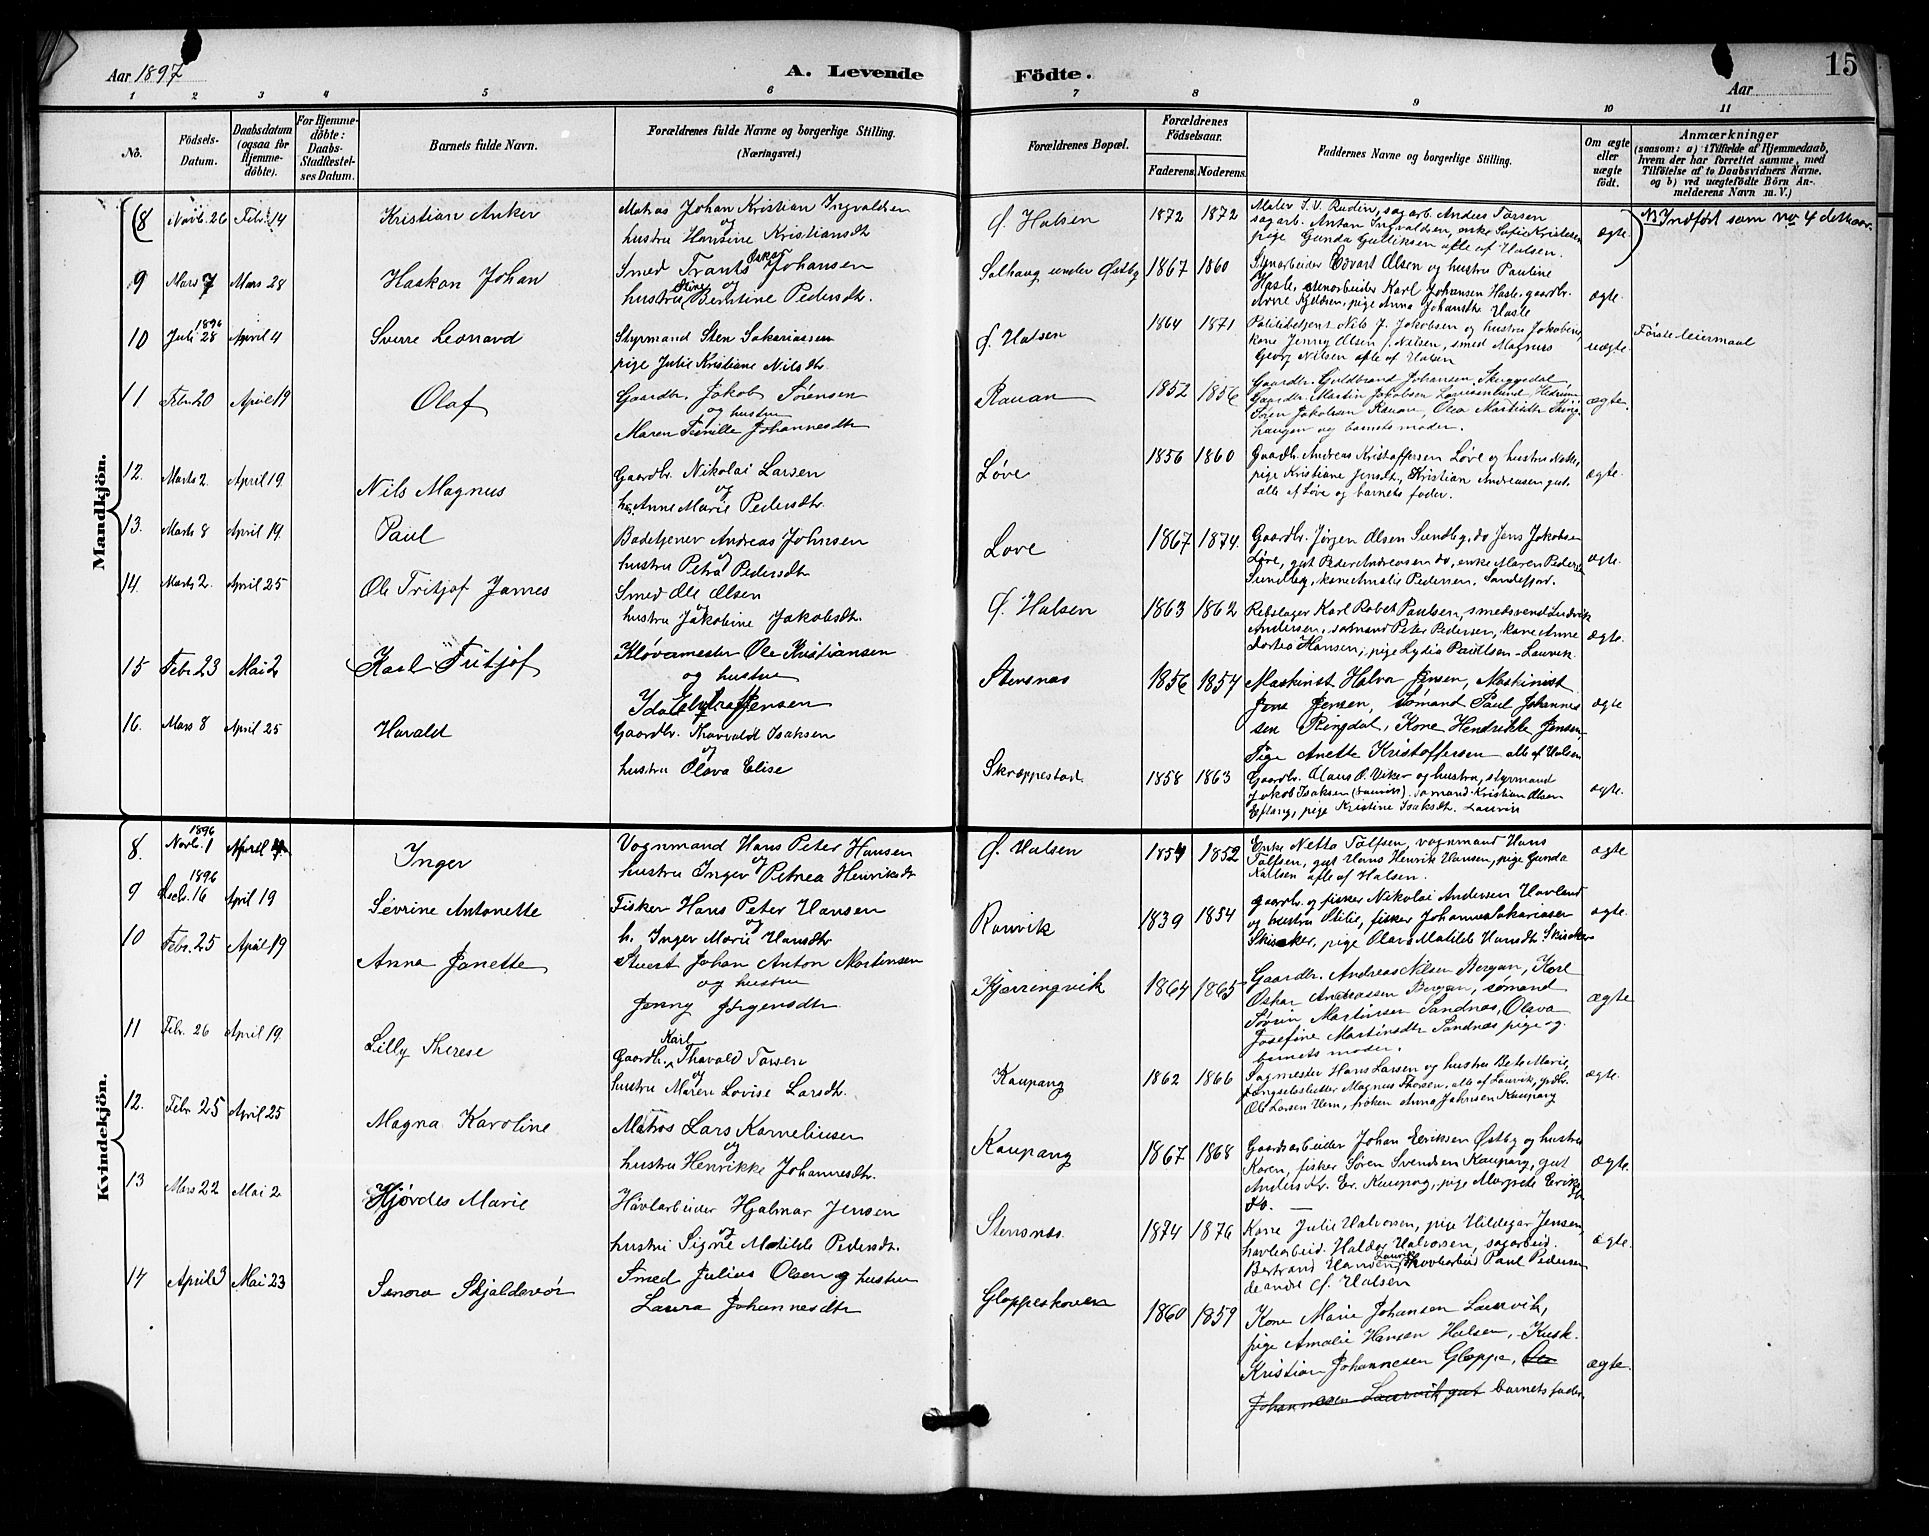 Aar 1897
A. Levende Födte.
Aar
15
1 2 3 4 5 6 7 8 9 10 11
No.
Födsels-Datum.
Daabsdatum (ogsaa for Hjemme-döbte).
For Hjemme-döbte: Daabs-Stadfæstel-ses Datum.
Barnets fulde Navn.
Forældrenes fulde Navne og borgerlige Stilling.
(Næringsvei.)
Forældrenes Bopæl.
Forældrenes Födselsaar.
Faderens. Moderens.
Faddernes Navne og borgerlige Stilling.
Om ægte eller uægte födt.
Anmærkninger
(saasom: a) i Tilfælde af Hjemmedaab,
hvem der har forrettet samme, med
Tilföielse af to Daabsvidners Navne,
og b) ved uægtefödte Börn An-
melderens Navn m. V.)
Mandkjön.
(8 Novb. 26 Febr. 14 Kristian Anker
Matros Johan Kristian Ingvaldsen
hustru Hansine Kristiansdt.
Ø. Halsen 1872 1872
Maler S. V. Rudin, sagarb. Anders Torsen
sagarb. Anton Ingvaldsen, enke Sofie Kristensen
pige Gunda Gulliksen alle af Halsen.
ægte.
NB Indført som no 4 dette aar.
9 Mars 7 Mars 28 Haakon Johan
Smed Frants Oskar Johansen
og
hustru Stine Berntine Pedersdt.
Solhaug under Østby 1867 1860
Stenarbeider Edvart Olsen og hustru Pauline
Hasle, stenarbeider Karl Johansen Hasle, gaardbr.
Arne Kjelsen, pige Anna Johansdtr Hasle
ægte.
10 1896 Juli 28 April 4 Sverre Leonard
Styrmand Sten Sakariassen
pige Julie Kristiane Nilsdtr.
Ø. Halsen 1864 1871
Politibetjent Nils J. Jakobsen og hustru Jakobine,
kone Jenny Olsen f. Nielsen, smed Magnus
Georg Nilsen alle af Halsen
uægte.
Første leiermaal
11 Febr. 20 April 19 Olaf
Gaardbr. Jakob Sørensen
og hustru
Maren Tomille Johannesdtr
Rauan 1852 1856
Gaardbr. Guldbrand Johansen Skuggedal,
Gaardbr. Martin Jakobsen Louisenlund, Hedrum,
Søren Jakobsen Rauan, Olea Martisdtr
haugen og barnets moder.
ægte.
12. Marts 2 April 19. Nils Magnus
Gaardbr. Nikolai Larsen
og
h. Anne Marie Pedersdtr.
Løve 1856 1860
Gaardbr. Andreas Kristoffersen Løve og hustru
pige Kristiane Jensdt, Kristian Andreasen gut.
alle af Løve og barnets fader.
ægte.
13. Marts 8 April 19. Paul
Badetjener Andreas Johnsen
og
hustru Petra Pedersdtr
Løve 1867 1874.
Gaardbr. Jørgen Olsen Sundby, do Jens Jakobsen
Løve, gut Peder Andreasen do, enke Maren Peders
Sundby, kone Amalie Pedersen, Sandefjord.
ægte.
14. Marts 2. April 25 Ole Fritjof James
Smed Ole Olsen
og
hustru Jakobine Jakobsdt.
Ø. Halsen 1863 1862
Rebslager Karl Robet Paulsen, smedsvend Ludvik
Andersen, sømand Peter Pedersen, kone Anne
Dortea Hansen, pige Lydia Paulsen - Laurvik.
ægte.
15 Febr. 23 Mai 2 Karl Fritjof
Kløvamester Ole Kristiansen
og hustru
Ida Jensen
Stensnæs 1856 1854
Maskinist Halvor Jensen, Maskinist
Jens Jensen, sømand Paul Johannes
sen Ringdal, Kone Hendrikke Jensen,
Pige Anette Kristoffersen alle af Halsen
ægte
16. Mars 8 April 25 Harald
Gaardbr. Thorvald Isaksen
og
hustru Olava Elise
Skræppestad 1858 1863
Gaardbr. Claus O. Viker og hustru, styrmand
Jakob Isaksen (Laurvik). sømand Kristian Olsen
Eftang, pige Kristine Isaksdt. Laurvik
ægte.
Kvindekjön.
8. 1896 Novb. 1 April Inger
Vognmand Hans Peter Hansen
og
hustru Inger Petrea Henriksdt
Ø. Halsen 1854 1852
Enke Netta Tolfsen, vognmand Hans
Tolfsen, gut Hans Henrik Hansen, pige Gunda
Karlsen alle af Halsen.
ægte
9 1896 Decb. 16 April 19 Sevrine Antonette
Fisker Hans Peter Hansen
og
h. Inger Marie Hansdtr
Rauvik 1839 1854
gaardbr. og fisker Nikolai Andersen Havland
og hustru Otilie, fisker Johannes Sakariasen
Skisaker, pige Olava Matilde Hansdt. Skisaker
ægte.
10 Febr. 25 April 19 Anna Janette
Stuert Johan Anton Mortensen
og hustru
Jenny Jørgensdtr.
Kjerringvik 1864 1865
Gaardbr. Andreas Nilsen Bergan, Karl
Oskar Andreassen Bergan, sømand
Sørin Martinsen Sandnæs, Olava
Josefine Martinsdtr Sandnæs pige og.
barnets moder.
ægte
11 Febr. 26 April 19. Lilly Therese
Gaardbr. Karl Thorvald Torsen
og
hustru Maren Lovise Larsdt.
Kaupang 1862 1866
Sagmester Hans Larsen og hustru Berte Marie,
Fængselsbetjent Magnus Thorsen, alle af Laurvik, grdbr.
Ole Larsen Vern, frøken Anna Johnsen Kaupang
ægte.
12. Febr 25 April 25 Magna Karoline
Matros Lars Korneliusen
og
hustru Henrikke Johannesdtr.
Kaupang 1867 1868
Gaardsarbeider Johan Eriksen Østby og hustru
Karen, fisker Søren Svendsen Kaupang, gut
Anders Kr. Er. Kaupang, pige Margrete Eriksdtr
do. —
ægte.
13 Mars 22 Mai 2 Hjørdes Marie
Høvlarbeider Hjalmar Jensen
og
hustru Signe Matilde Pedersdtr.
Stensnæs. 1874 1876
Kone Julie Halvorsen, pige Hildegar Jensen,
høvlearbeid. Haldor Halvorsen, sagarbeid.
Bertrand Hansen Laurvik, Høvlearbeid Paul Pedersen
de andre Ø. Halsen
ægte.
14 April 3 Mai 23 Senora Skjaldevør
Smed Julius Olsen og hustru
Laura Johannesdtr
Gloppeskoven 1860 1859
Kone Marie Johansen Laurvik,
pige Amalie Hansen Halsen, Kusk.
Kristian Johannesen Gloppe, Ole
Johannesen Laurvik gut barnets fader.
ægte.